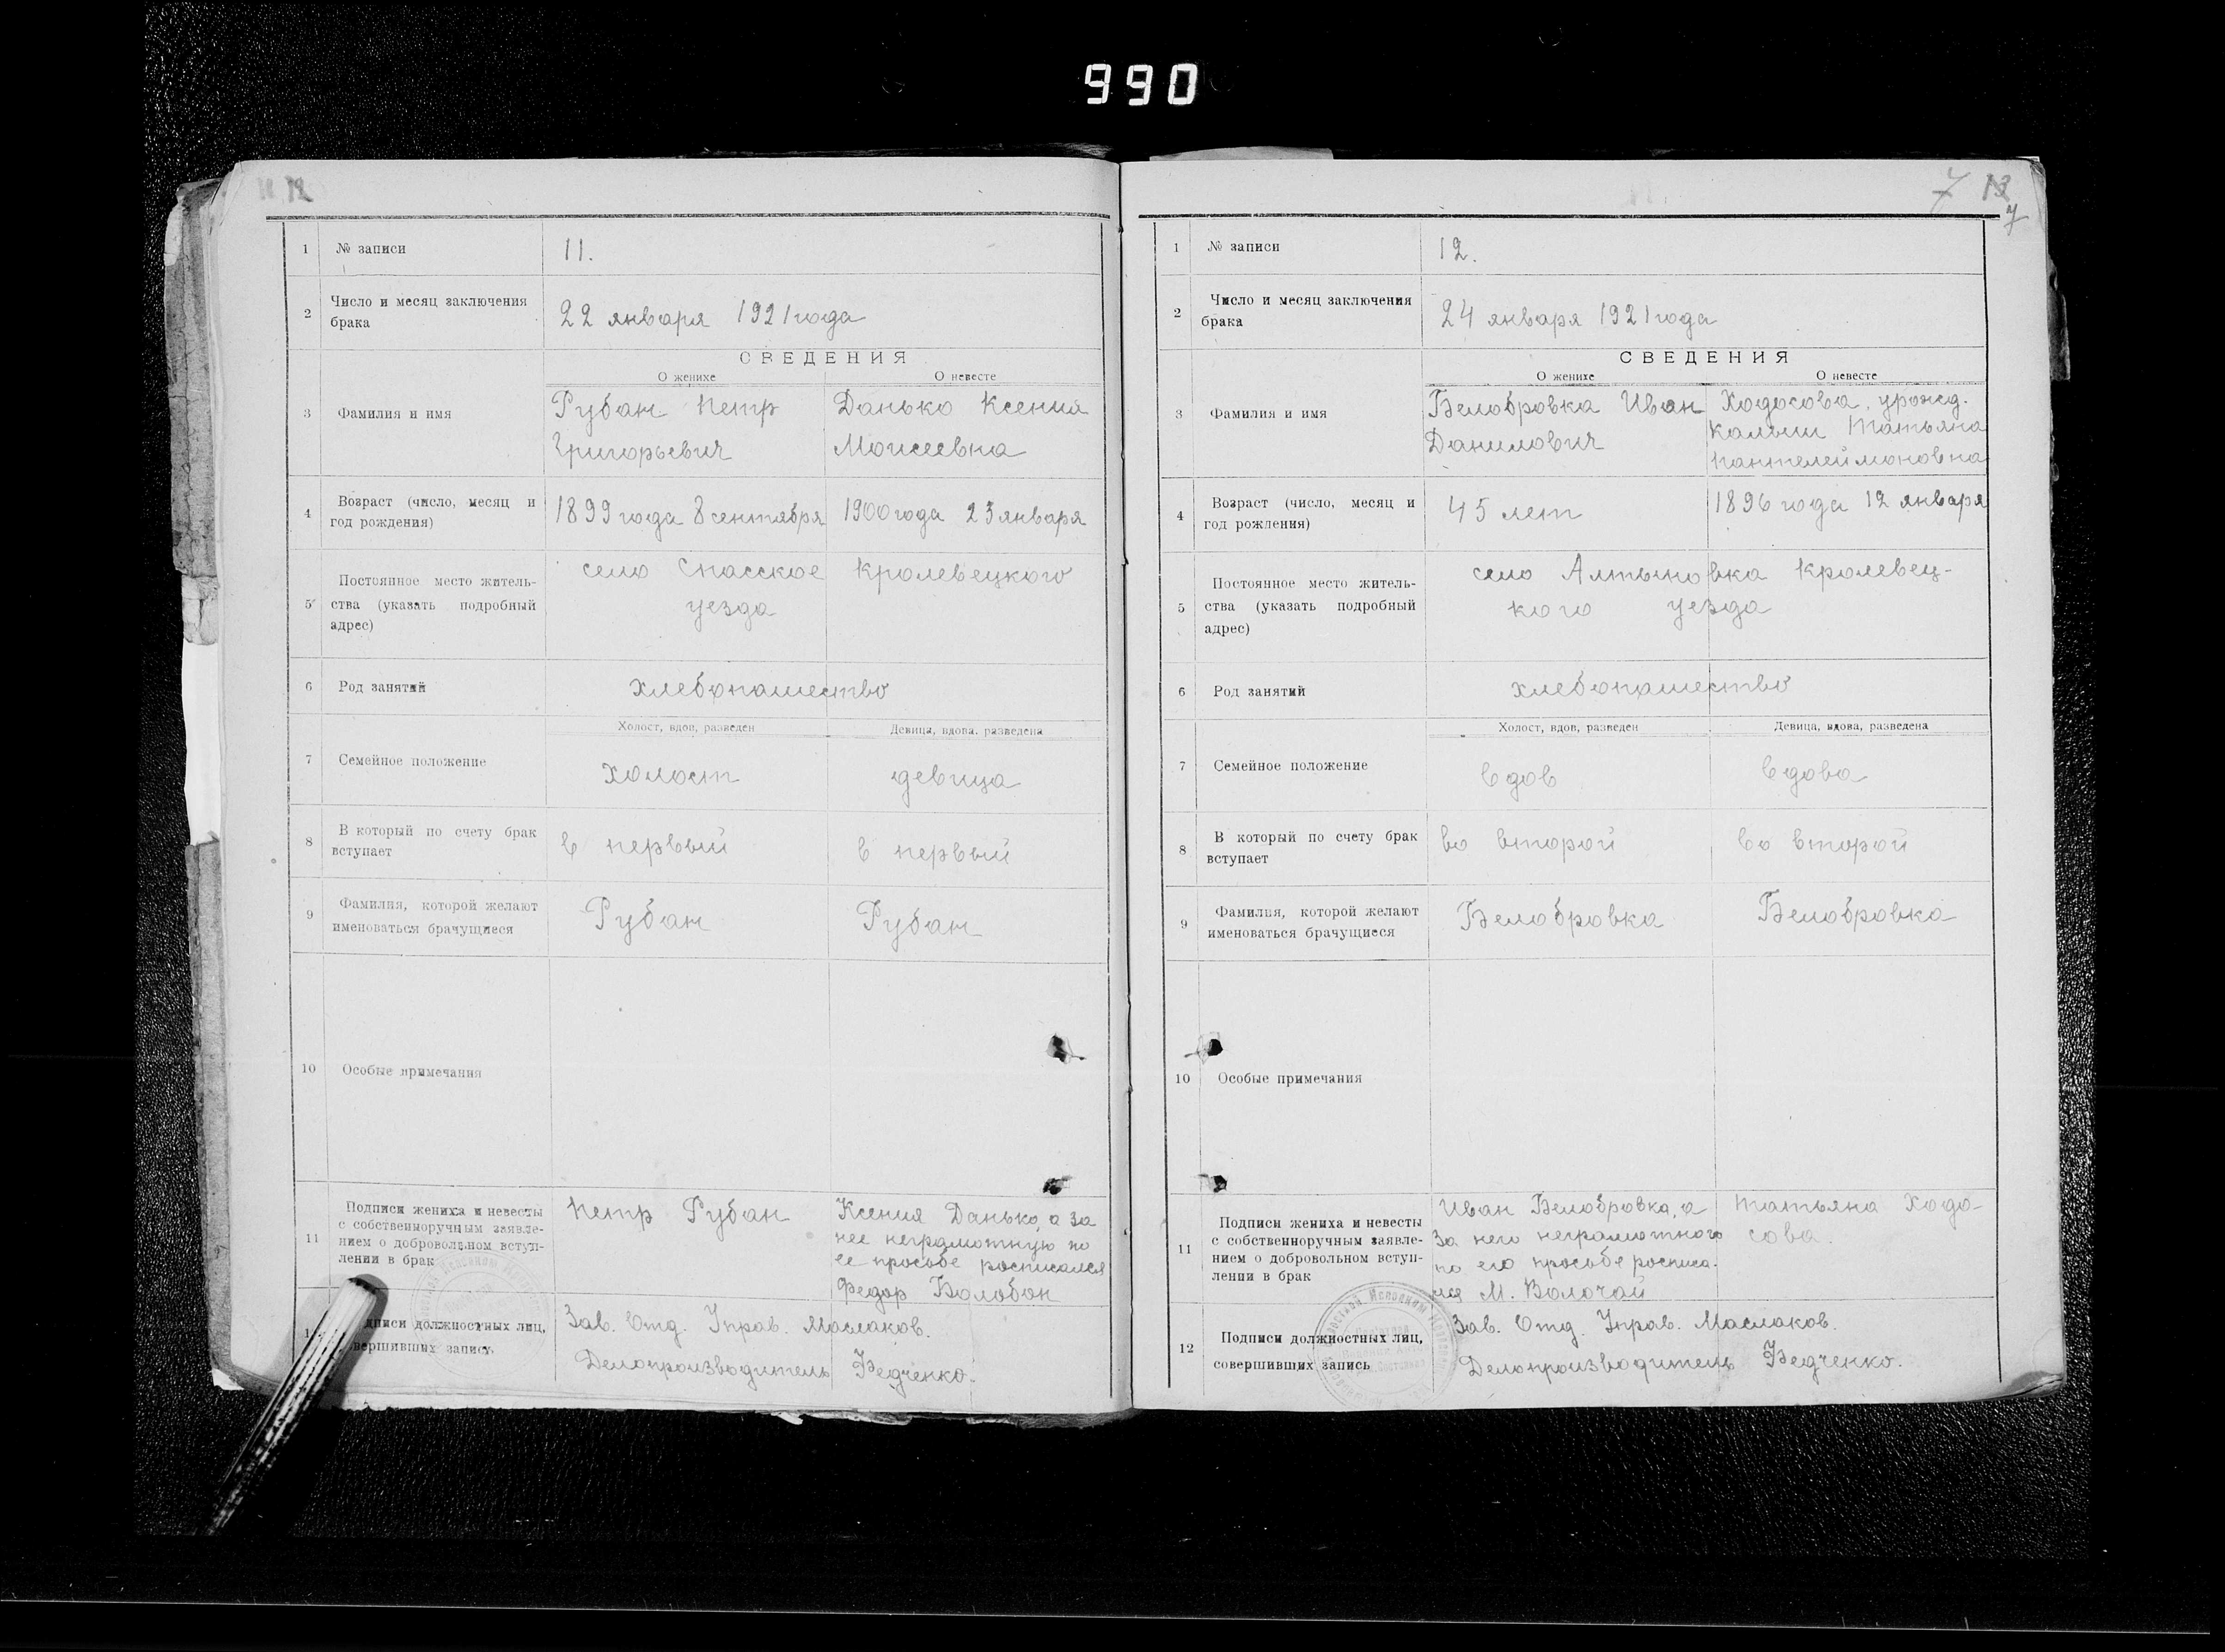 990
12
1 № записи 11.
2 Число и месяц заключения
брака
22 января 1921 года
СВЕДЕНИЯ
О женихе О невесте
3 Фамилия и имя
Рубан Петр Данько Ксения
Григорьевич Моисеевна
4 Возраст (число, месяц и
год рождения)
1899 года 8 сентября 1900 года 23 января
5 Постоянное место житель-
ства (указать подробный
адрес)
село Спасское Кролевецкого
уезда
6 Род занятий хлебопашество
Холост, вдов, разведен Девица, вдова, разведена
7 Семейное положение холост девица
8 В который по счету брак
вступает
в первый в первый
9 Фамилия, которой желают
именоваться брачущиеся
Рубан Рубан
10 Особые примечания
11 Подписи жениха и невесты
с собственноручным заявле-
нием о добровольном вступ-
лении в брак
Петр Рубан
Ксения Данько, а за
нее неграмотную по
ее просьбе росписался
Федор Болобон
дписи должностных лиц,
вершивших запись
Зав. Отд. Управ. Маслаков.
Делопроизводитель Ведченко.
7 13
7
1 № записи 12.
2 Число и месяц заключения
брака
24 января 1921 года
СВЕДЕНИЯ
О женихе О невесте
3 Фамилия и имя
Белобровка Иван Ходосова, урожд.
Данилович Калыш Татьяна
Пантелеймоновна
4 Возраст (число, месяц и
год рождения)
45 лет 1896 года 12 января
5 Постоянное место житель-
ства (указать подробный
адрес)
село Алтыновка Кролевец-
кого уезда
6 Род занятий хлебопашество
Холост, вдов, разведен Девица, вдова, разведена
7 Семейное положение вдов вдова
8 В который по счету брак
вступает
во второй во второй
9 Фамилия, которой желают
именоваться брачущиеся
Белобровка Белобровка
10 Особые примечания
11 Подписи жениха и невесты
с собственноручным заявле-
нием о добровольном вступ-
лении в брак
Иван Белобровка, а
за него неграмотного
по его просьбе росписа-
лся М. Волочай
Татьяна Ходо-
сова.
12 Подписи должностных лиц,
совершивших запись
Зав. Отд. Управ. Маслаков.
Делопроизводитель Ведченко.